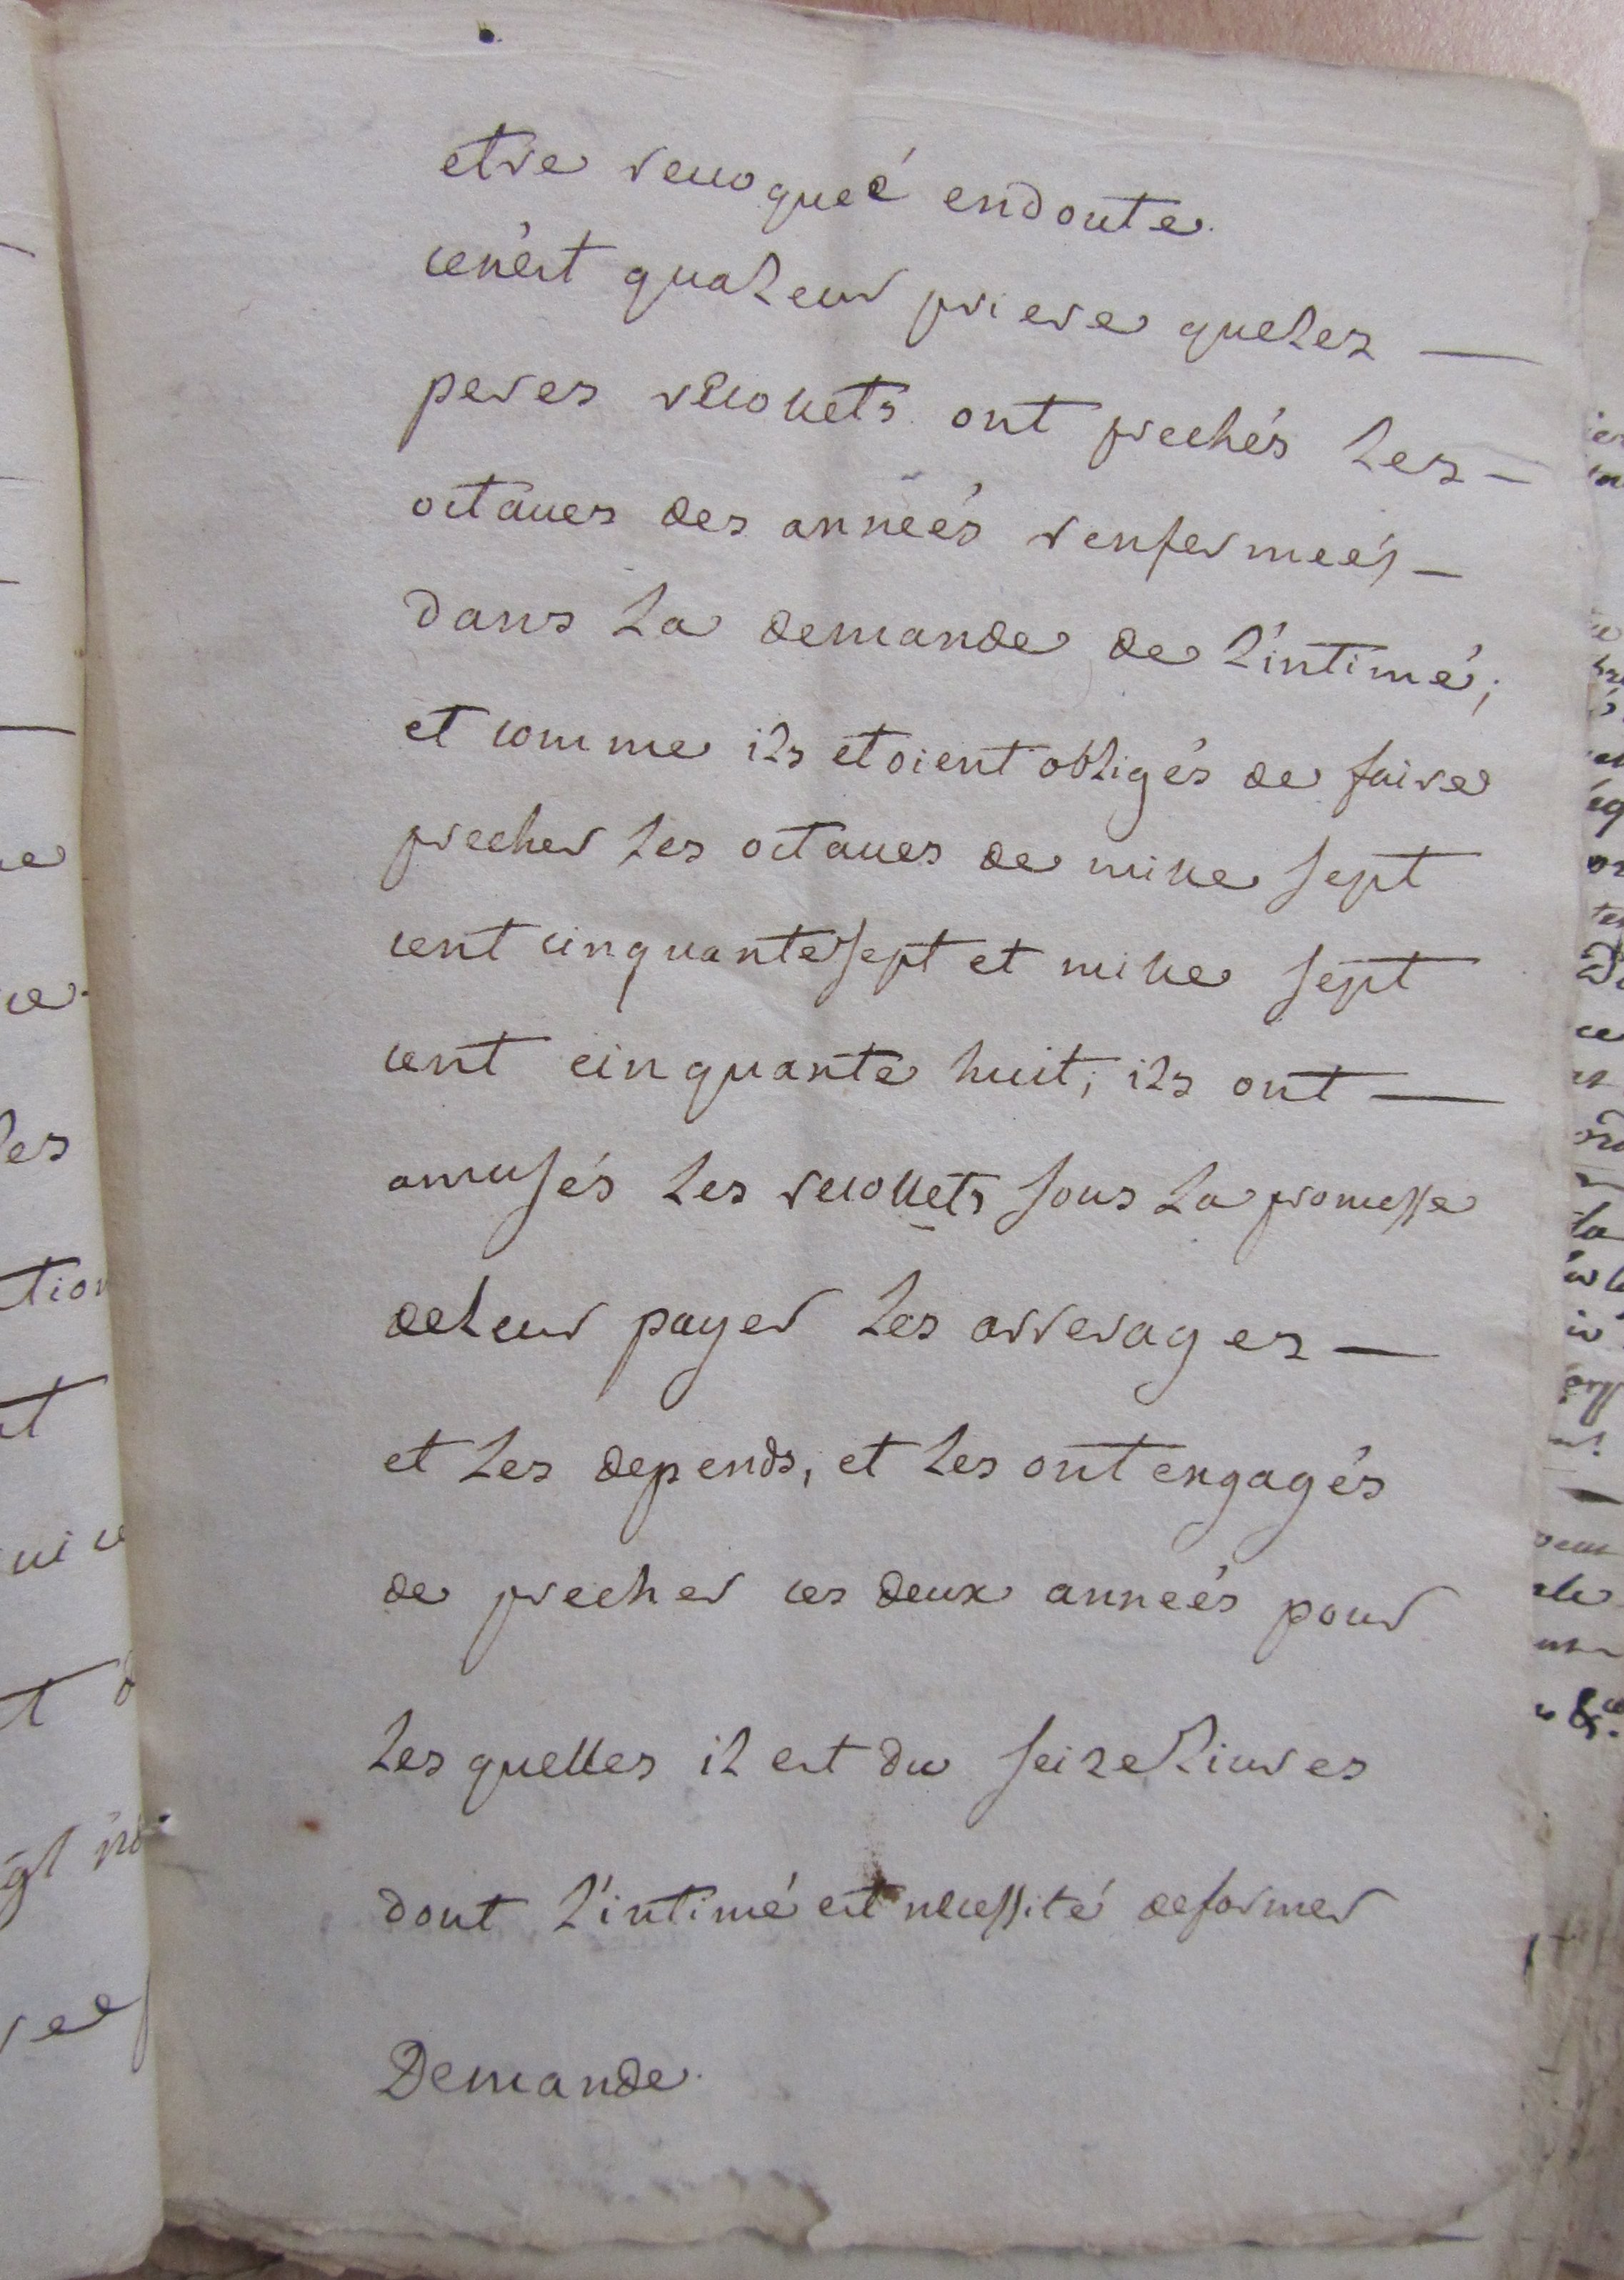 etre revoqueé endoute.
cenést qualeur priere queles —
peres récollets ont prechés les —
octaves des anneés renfermeés —
dans la demande de l'intimé;
et comme ils etoient obligés de faire
precher les octaves de mille sept
cent cinquante sept et mille sept
cent cinquante huit; ils ont —
amusés les recollets sous la promesse
deleur payer les arrerages —
et les depends, et les ont engagés
de precher ces deux anneés pour
les quelles il est du seize livres
dont l'intimé est necessité deformer
Demande.